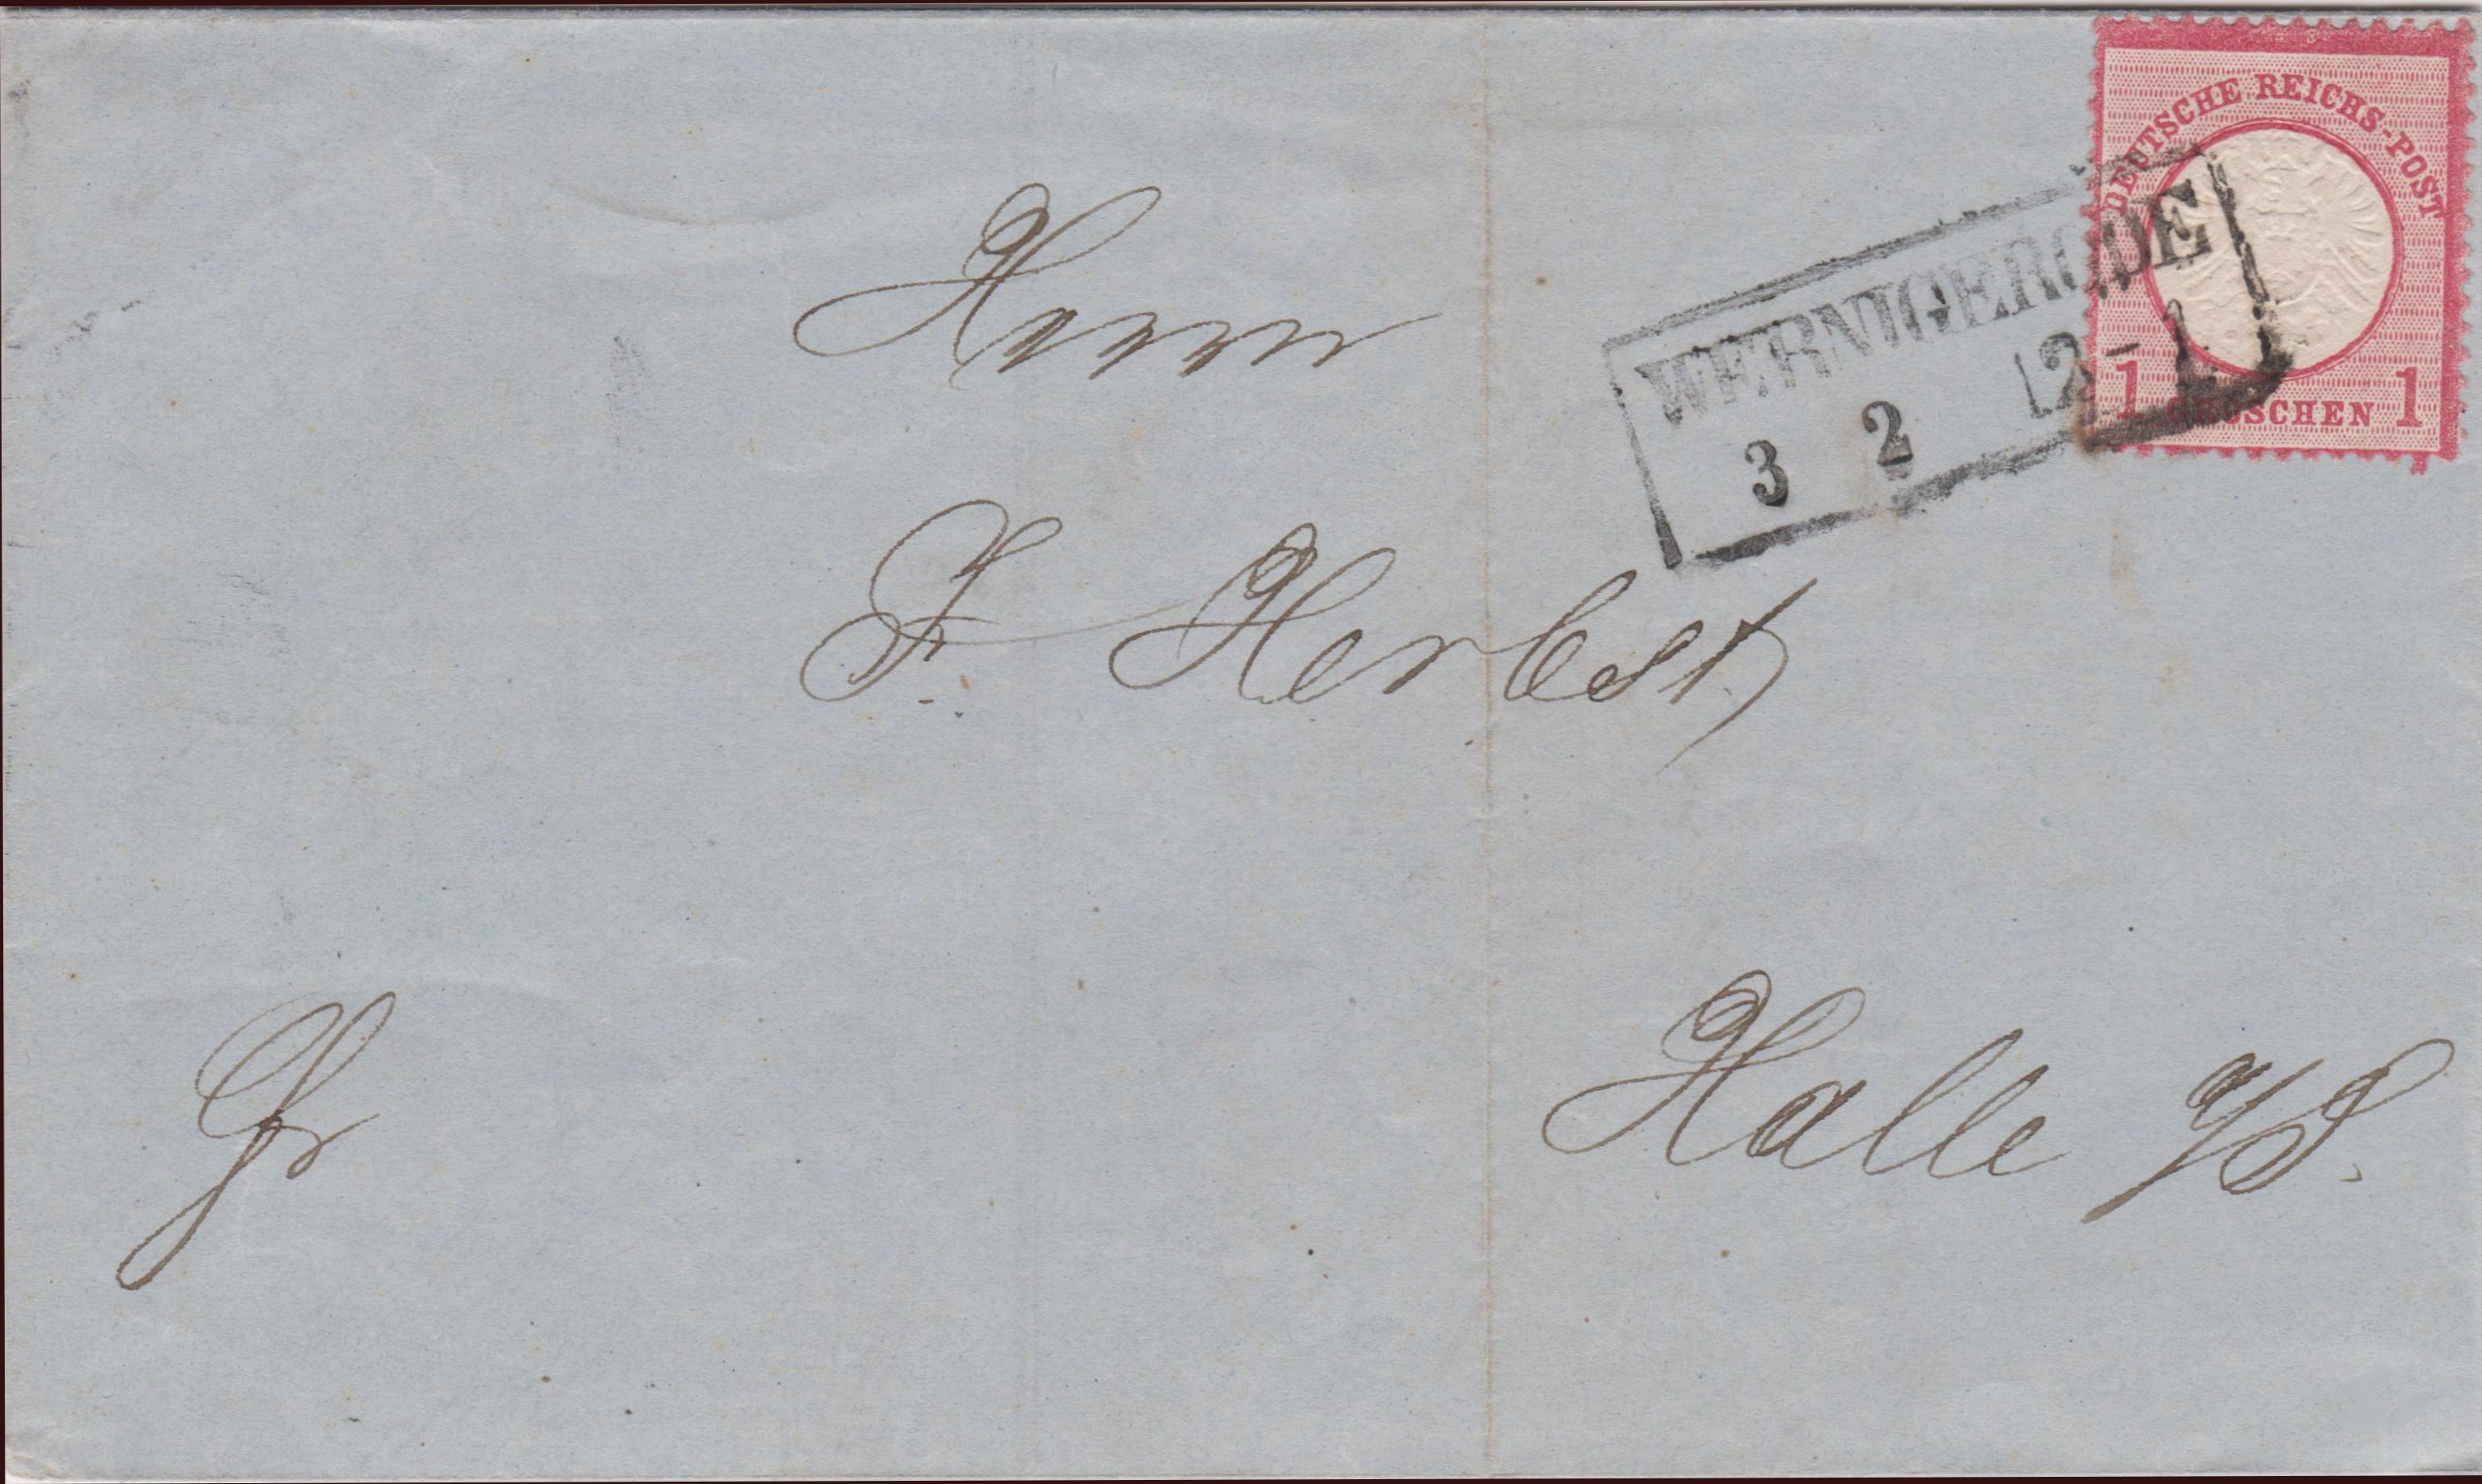 DEUTSCHE REICHS-POST
1 GROSCHEN 1
WERNIGERODE
3 2 12-1
Herrn
F. Herbst
Halle a/S.
Fr